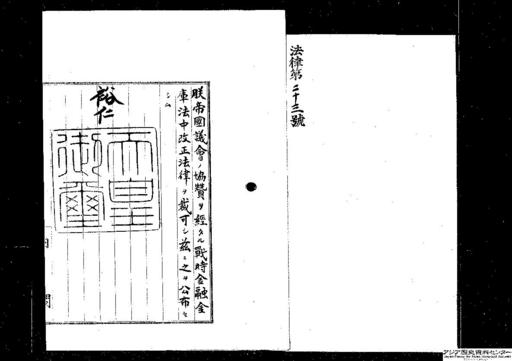 法律第二十三號
朕帝國議會ノ協賛ヲ經タル戰時金融金
庫法中改正法律ヲ裁可シ茲ニ之ヲ公布セ
シム
裕仁
天皇
御璽
アジア歴史資料センター